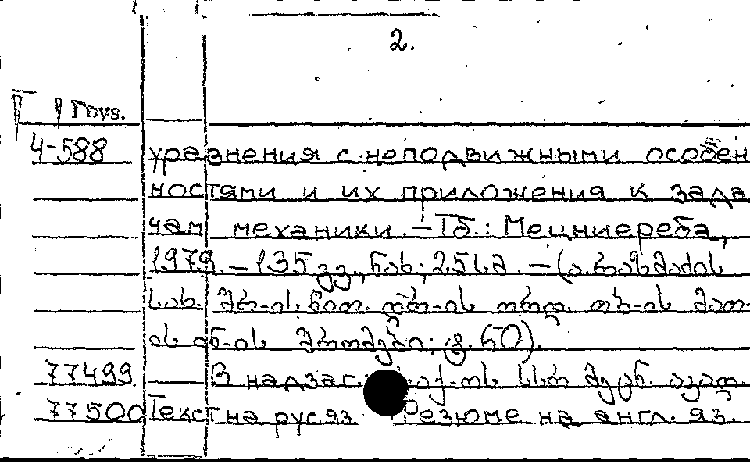 2.
Груз.
4-588
уравнения с неподвижными особен
ностями и их приложения к зада
чам механики. – Тб.: Мецниереба,
1979. – 135 გვ., ნახ.; 25 სმ. – (ა. რაზმაძის
სახ. შრ-ის წით. დრ-ის
ის ინ-ის შრომები; ტ. 60).
77499 В надзаг.: საქ. სსრ მეცნ. აკად.
77500 Текст на рус. яз. Резюме на англ. яз.